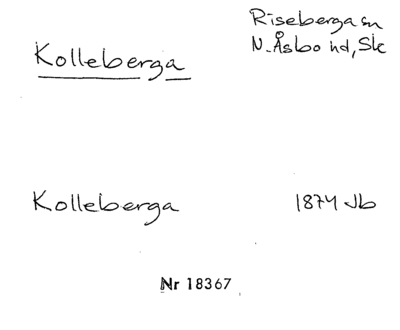 Riseberga sn
Kolleberga
N. Åsbo hd, Sk
Kolleberga 1874 Jb
Nr 18367